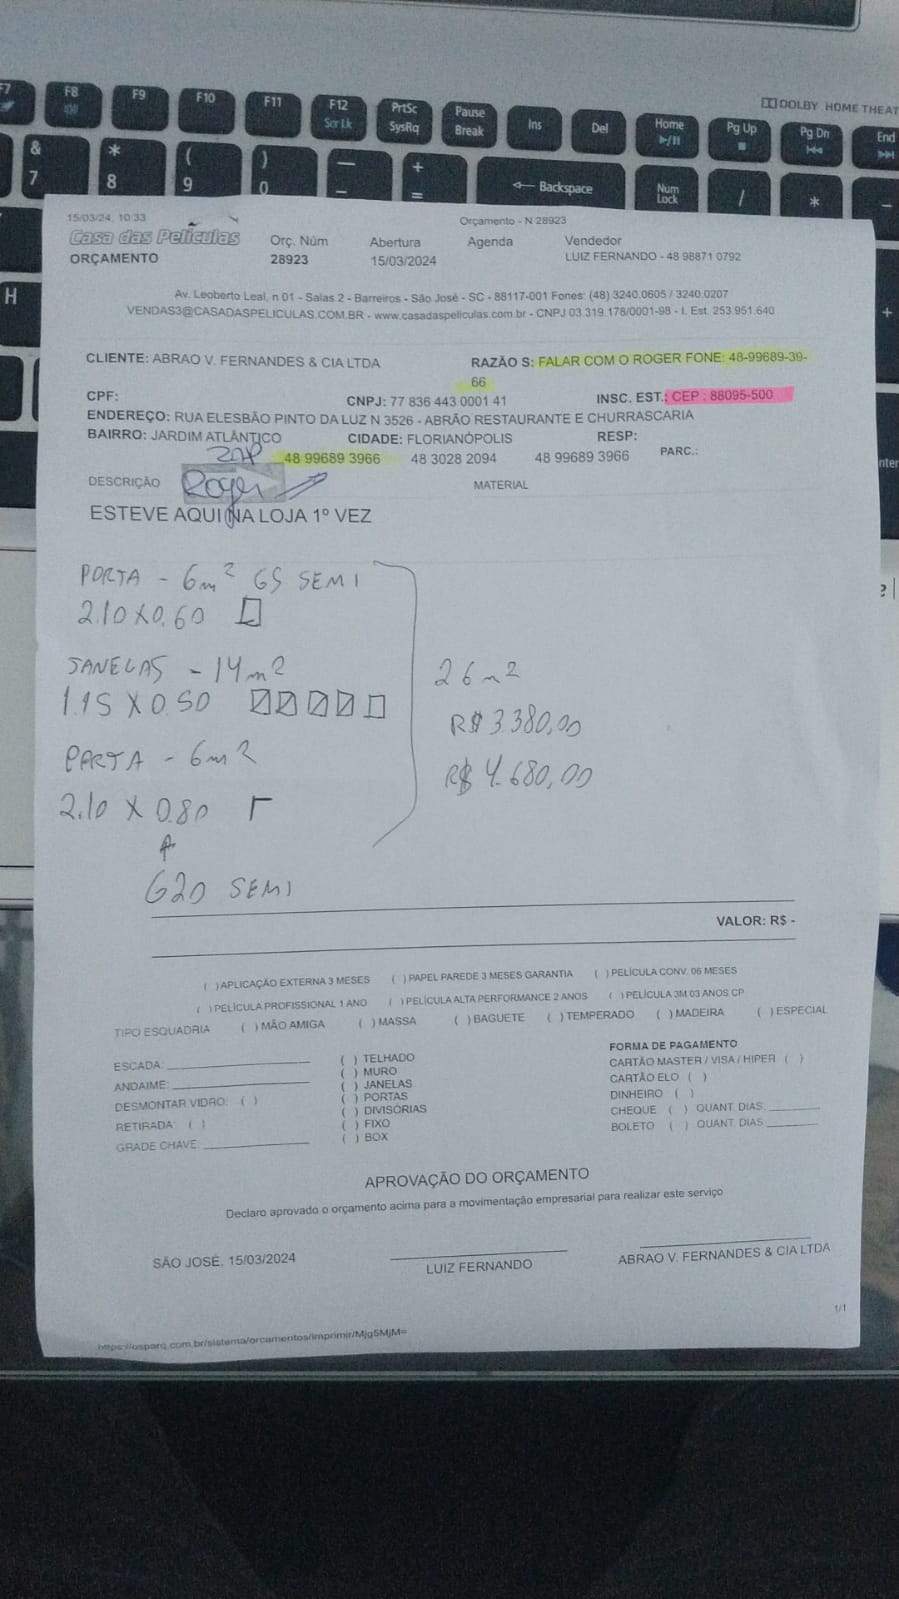 F7 F8 F9 F10 F11 F12 Scr Lk PrtSc SysRq Pause Break Ins Del Home Pg Up Pg Dn End
DOLBY HOME THEAT
& 7 * 8 ( 9 ) 0 — - + = Backspace Num Lock / * -
H
+
nter
15/03/24, 10:33 Orçamento - N 28923
Casa das Películas Orç. Núm Abertura Agenda Vendedor
ORÇAMENTO 28923 15/03/2024 LUIZ FERNANDO - 48 98871 0792
Av. Leoberto Leal, n 01 - Salas 2 - Barreiros - São José - SC - 88117-001 Fones: (48) 3240.0605 / 3240.0207
VENDAS3@CASADASPELICULAS.COM.BR - www.casadaspeliculas.com.br - CNPJ 03.319.178/0001-98 - I. Est. 253.951.640
CLIENTE: ABRAO V. FERNANDES & CIA LTDA RAZÃO S: FALAR COM O ROGER FONE: 48-99689-39-
66
CPF: CNPJ: 77 836 443 0001 41 INSC. EST.: CEP : 88095-500
ENDEREÇO: RUA ELESBÃO PINTO DA LUZ N 3526 - ABRÃO RESTAURANTE E CHURRASCARIA
BAIRRO: JARDIM ATLÂNTICO CIDADE: FLORIANÓPOLIS RESP:
ZAP 48 99689 3966 48 3028 2094 48 99689 3966 PARC.:
DESCRIÇÃO Roger MATERIAL
ESTEVE AQUI NA LOJA 1º VEZ
PORTA - 6m² G5 SEMI
2.10 X 0.60
JANELAS - 14m²
1.15 X 0.50
26 m²
R$ 3.380,00
PORTA - 6m²
R$ 4.680,00
2.10 X 0.80
G20 SEMI
VALOR: R$ -
( ) APLICAÇÃO EXTERNA 3 MESES ( ) PAPEL PAREDE 3 MESES GARANTIA ( ) PELÍCULA CONV. 06 MESES
( ) PELÍCULA PROFISSIONAL 1 ANO ( ) PELÍCULA ALTA PERFORMANCE 2 ANOS ( ) PELÍCULA 3M 03 ANOS CP
TIPO ESQUADRIA ( ) MÃO AMIGA ( ) MASSA ( ) BAGUETE ( ) TEMPERADO ( ) MADEIRA ( ) ESPECIAL
ESCADA: ( ) TELHADO FORMA DE PAGAMENTO
( ) MURO CARTÃO MASTER / VISA / HIPER ( )
ANDAIME: ( ) JANELAS CARTÃO ELO ( )
DESMONTAR VIDRO: ( ) ( ) PORTAS DINHEIRO ( )
RETIRADA: ( ) ( ) DIVISÓRIAS CHEQUE ( ) QUANT. DIAS:
( ) FIXO BOLETO ( ) QUANT. DIAS
GRADE CHAVE: ( ) BOX
APROVAÇÃO DO ORÇAMENTO
Declaro aprovado o orçamento acima para a movimentação empresarial para realizar este serviço
SÃO JOSÉ, 15/03/2024 LUIZ FERNANDO ABRAO V. FERNANDES & CIA LTDA
1/1
https://osparq.com.br/sistema/orcamentos/imprimir/Mjg5MjM=